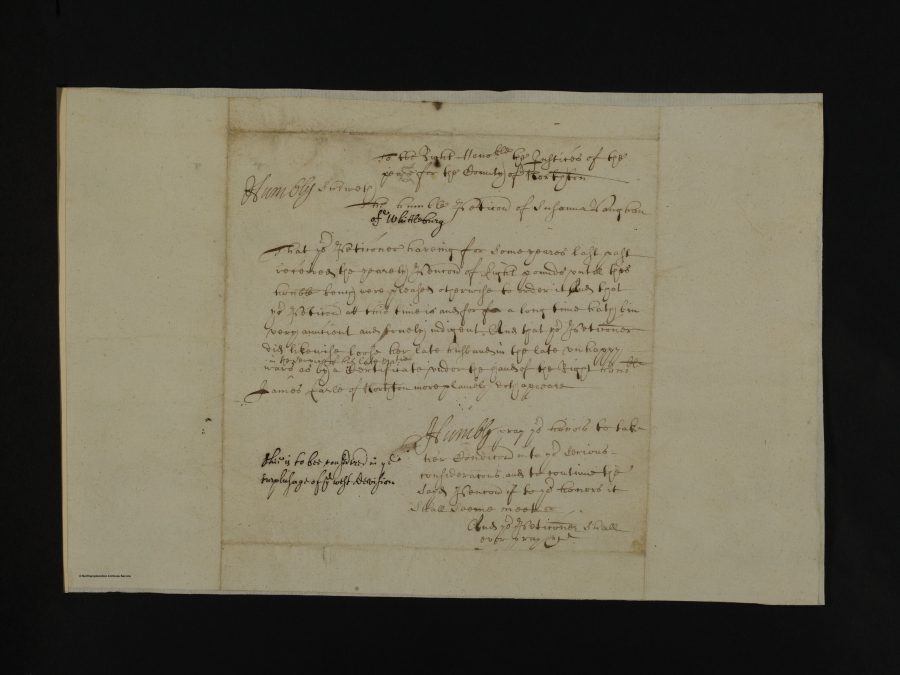 To the Right Honoble the Justices of the
peace for the County of Northton
Humbly Sheweth
The humble Peticon of Susanna Vaughan
of Whittleburg
That yr Peticoner haveing for some yeares last past
received the yearely Pencon of Eight pounds untill this
honoble bench were pleased otherwise to order it And that
yr Peticonr at this time is and for a long time hath bin
very antient and indigent And that yr Peticoner
did likewise loose her late husband in the late unhappy
in the service of his late Matie
wars as by a Certificate under the hand of the Right Honoble
James Earle of Northton more plainely doth appeare
Humbly pray yr honors to take
her Condicon into yr serious
consideracons and to continue the
said Pencon if to yr honors it
shall seeme meete
And yr Peticoner shall
ever pray &c
This is to bee considered in ye
surplusage of ye west devision
© Northamptonshire Archives Service